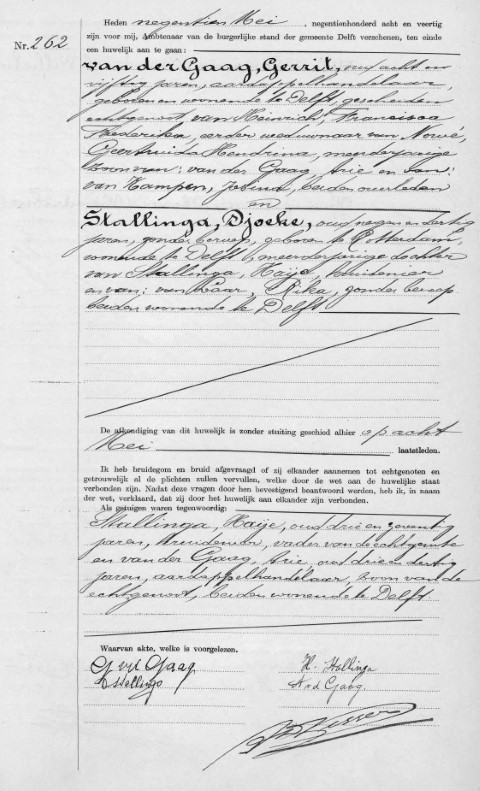 Heden negentien Mei, negentienhonderd acht en veertig
zijn voor mij, Ambtenaar van de burgerlijke stand der gemeente Delft verschenen, ten einde
een huwelijk aan te gaan:
Nr. 262
van der Gaag, Gerrit, oud acht en
vijftig jaren, aardappelhandelaar,
geboren en wonende te Delft, gescheiden
echtgenoot van Heinrich, Francisca
Frederika, eerder weduwnaar van Nowé,
Geertruida Hendrina, meerderjarige
zoon van: van der Gaag, Arie en van:
van Kampen, Jobina, beiden overleden
en
Stallinga, Djoeke, oud negen en dertig
jaren, zonder beroep, geboren te Rotterdam,
wonende te Delft, meerderjarige dochter
van Stallinga, Haije, kruidenier
en van: van Laar, Rika, zonder beroep
beiden wonende te Delft
De afkondiging van dit huwelijk is zonder stuiting geschied alhier op acht
Mei laatstleden.
Ik heb bruidegom en bruid afgevraagd of zij elkander aannemen tot echtgenoten en
getrouwelijk al de plichten zullen vervullen, welke door de wet aan de huwelijke staat
verbonden zijn. Nadat deze vragen door hen bevestigend beantwoord werden, heb ik, in naam
der wet, verklaard, dat zij door het huwelijk aan elkander zijn verbonden.
Als getuigen waren tegenwoordig:
Stallinga, Haije, oud drie en zeventig
jaren, kruidenier, vader van de echtgenote
en van der Gaag, Arie, oud drie en dertig
jaren, aardappelhandelaar, zoon van de
echtgenoot, beiden wonende te Delft
Waarvan akte, welke is voorgelezen.
G vd Gaag
D Stallinga
H. Stallinga
A v d Gaag.